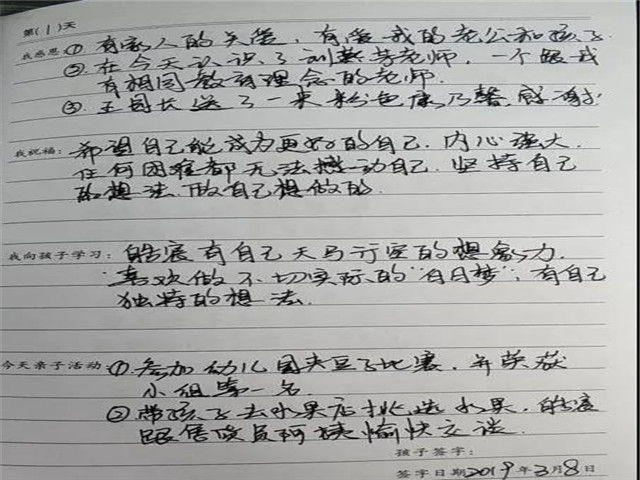 第(1)天
我感恩:① 有家人的关爱,有爱我的老公和孩子
②.在今天认识了刘燕芳老师,一个跟我
有相同教育理念的老师.
③.王园长送了一朵粉色康乃馨,感谢
我祝福:希望自己能成为更好的自己.内心强大.
任何困难都无法撼动自己.坚持自己
的想法.做自己想做的.
我向孩子学习:皓宸有自己天马行空的想象力.
喜欢做不切实际的"白日梦";有自己
独特的想法.
今天亲子活动 ①.参加幼儿园夹豆子比赛.并荣获
小组第一名.
②带孩子去水果店挑选水果,皓宸
跟售货员阿姨愉快交谈.
孩子签字:
签字日期2019年3月8日